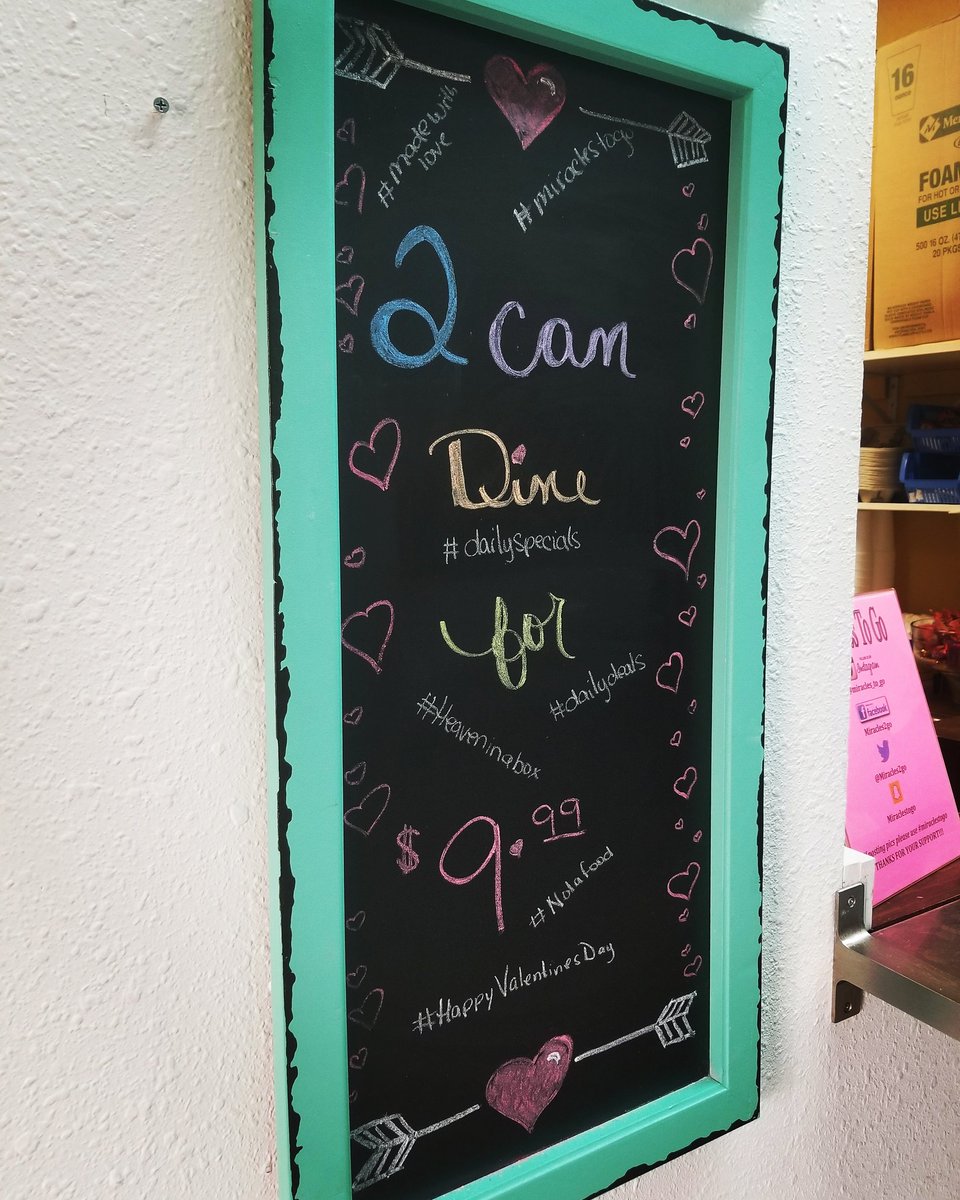 #madewith
love
#miraclestogo
2 can
Dine
#dailyspecials
for
#dailydeals
#Heaveninabox
$9.99
#Notafood
#HappyValentinesDay
16
FOAM
FOR HOT OR
USE
500 16 OZ.
20 PKGS
To Go
Instagram
#miracles_to_go
facebook
Miracles2go
@Miracles2go
Miraclestogo
posting pics please use #miraclestogo
THANKS FOR YOUR SUPPORT!!!